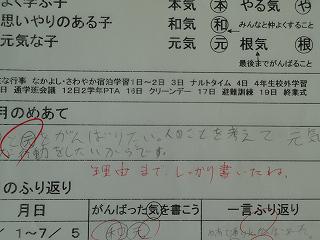 よく学ぶ子 本気 本 やる気 や
思いやりのある子 和気 和 みんなと仲よくすること
元気な子 元気 元 根気 根
最後までがんばること
な行事 なかよし・さわやか宿泊学習1日~2日 3日 ナルトタイム 4日 4年生校外学習
日 通学班会議 12日2学年PTA 16日 クリーンデー 17日 避難訓練 19日 終業式
月のめあて
元をがんばりたい。人のことを考えて 元気
行動をしたいからです。
理由まで、しっかり書いたね。
のふり返り
月日 がんばった気を書こう 一言ふり返り
/1~7/5 和 元